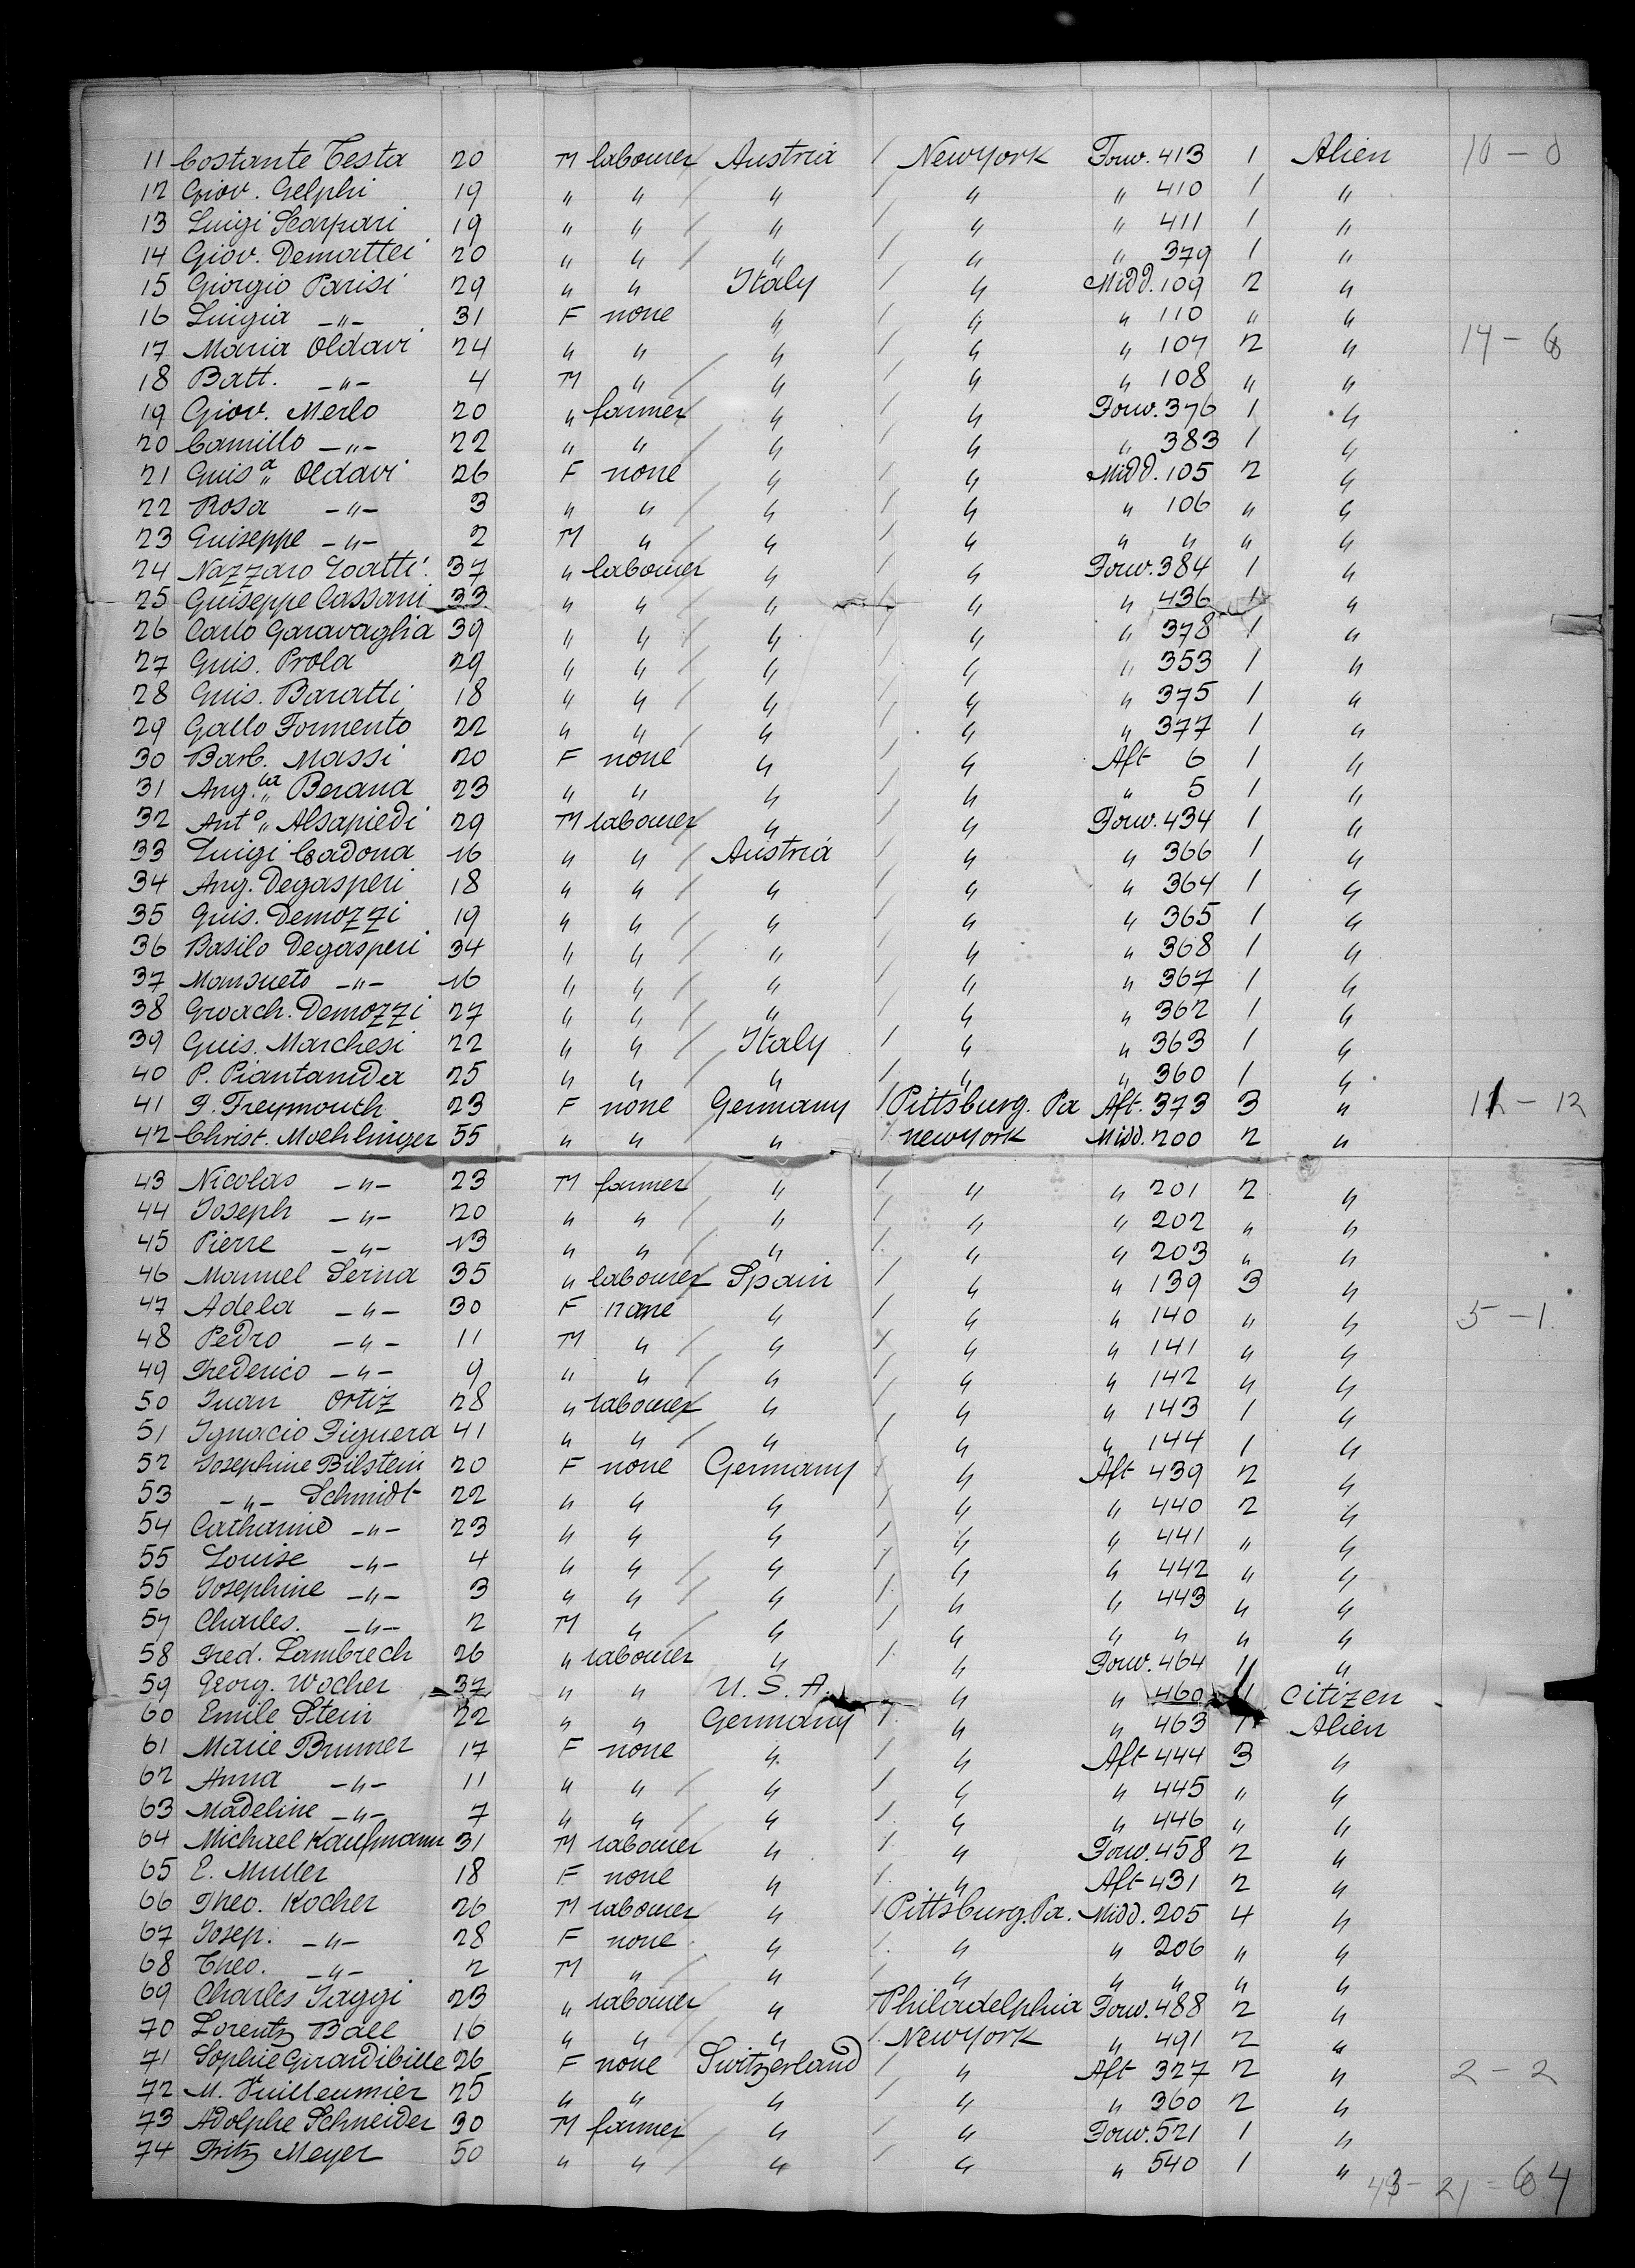 11 Costante Testa 20 M labourer Austria / New York Forw. 413 1 Alien 10 - 0
12 Giov. Gelphi 19 " " / " / " " 410 1 "
13 Luigi Scarpari 19 " " / " / " " 411 1 "
14 Giov. Demattei 20 " " / " / " " 379 1 "
15 Giorgio Parisi 29 " " Italy / " Midd. 109 2 "
16 Luigia -"- 31 F none " / " " 110 " "
17 Maria Oldavi 24 " " " / " " 107 2 " 14 - 6
18 Batt. -"- 4 M " / " / " " 108 " "
19 Giov. Merlo 20 " farmer " / " Forw. 376 1 "
20 Camillo -"- 22 " " / " / " " 383 1 "
21 Guis.a Oldavi 26 F none " / " Midd. 105 2 "
22 Rosa -"- 3 " " / " / " " 106 " "
23 Guiseppe -"- 2 M " / " / " " " " "
24 Nazzaro Loatti 37 " labourer " / " Forw. 384 1 "
25 Guiseppe Cassani 33 " " / " " " 436 1 "
26 Carlo Garavaglia 39 " " / " / " " 378 1 "
27 Guis. Prola 29 " " / " / " " 353 1 "
28 Guis. Baratti 18 " " / " / " " 375 1 "
29 Gallo Formento 22 " " / " / " " 377 1 "
30 Barb. Massi 20 F none " / " Aft 6 1 "
31 Ang.la Berana 23 " " " / " " 5 1 "
32 Anto. Alsapiedi 29 M labourer " / " Forw. 434 1 "
33 Luigi Cadona 16 " " / Austria / " " 366 1 "
34 Ang. Degasperi 18 " " / " / " " 364 1 "
35 Guis. Demozzi 19 " " / " / " " 365 1 "
36 Basilo Degasperi 34 " " / " / " " 368 1 "
37 Mansueto -"- 16 " " / " / " " 367 1 "
38 Groach. Demozzi 27 " " / " / " " 362 1 "
39 Guis. Marchesi 22 " " / Italy / " " 363 1 "
40 P. Piantanida 25 " " / " / " " 360 1 "
41 P. Freymouth 23 F none Germany / Pittsburg. Pa Aft. 373 3 " 11 - 12
42 Christ. Moehlinger 55 " " " / New York Midd. 200 2 "
43 Nicolas -"- 23 M farmer / " / " " 201 2 "
44 Joseph -"- 20 " " / " / " " 202 " "
45 Pierre -"- 13 " " / " / " " 203 " "
46 Manuel Serna 35 " labourer Spain / " " 139 3 "
47 Adela -"- 30 F none " / " " 140 " " 5 - 1
48 Pedro -"- 11 M " / " / " " 141 " "
49 Frederico -"- 9 " " / " / " " 142 " "
50 Juan Ortiz 28 " labourer " / " " 143 1 "
51 Ignacio Figuera 41 " " / " / " " 144 1 "
52 Josephine Bilstein 20 F none Germany / " Aft 439 2 "
53 -"- Schmidt 22 " " " / " " 440 2 "
54 Catharine -"- 23 " " " / " " 441 " "
55 Louise -"- 4 " " / " / " " 442 " "
56 Josephine -"- 3 " " / " / " " 443 " "
57 Charles. -"- 2 M " / " / " " " " "
58 Fred. Lambrech 26 " labourer " / " Forw. 464 1 "
59 Georg. Wocher 37 " " U. S. A. " " 460 1 Citizen 1
60 Emile Stein 22 " " Germany / " " 463 1 Alien
61 Marie Brunner 17 F none " / " Aft 444 3 "
62 Anna -"- 11 " " / " / " " 445 " "
63 Madeline -"- 7 " " / " / " " 446 " "
64 Michael Kaufmann 31 M labourer " / " Forw. 458 2 "
65 E. Muller 18 F none " / " Aft 431 2 "
66 Theo. Kocher 26 M labourer " / Pittsburg. Pa. Midd. 205 4 "
67 Josep. -"- 28 F none " / " " 206 " "
68 Theo. -"- 2 M " / " / " " " " "
69 Charles Jaggi 23 " labourer " Philadelphia Forw. 488 2 "
70 Lorentz Ball 16 " " / " / New York " 491 2 "
71 Sophie Girardibille 26 F none Switzerland / " Aft 327 2 " 2 - 2
72 M. Vuilleumier 25 " " " / " " 360 2 "
73 Adolphe Schneider 30 M farmer " / " Forw. 521 1 "
74 Fritz Meyer 50 " " / " / " " 540 1 "
43 - 21 = 64